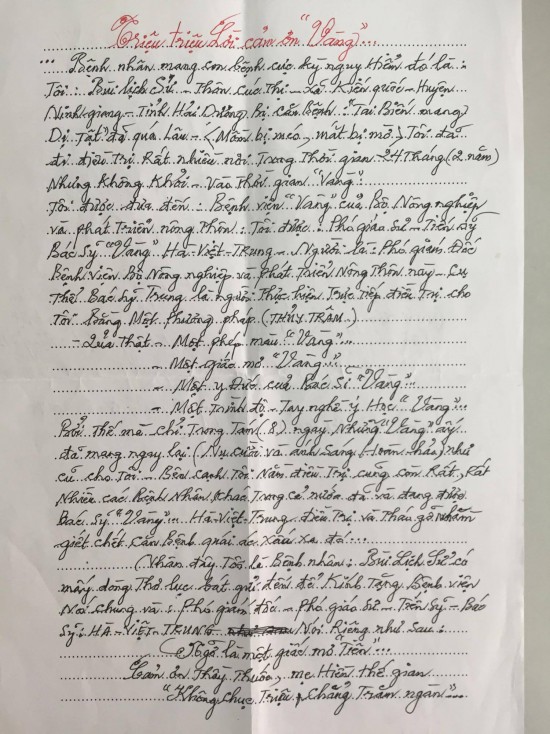 Triệu triệu Lời cảm ơn "Vàng"...
... Bệnh nhân mang căn bệnh cực kỳ nguy Hiểm đó là :
Tôi : Bùi Lịch Sử - Thôn Cúc Thị - xã Kiến quốc - Huyện
Ninh giang - Tỉnh Hải Dương bị căn Bệnh : Tai Biến mang
Dị Tật đã quá Lâu - (Mồm bị méo, mắt bị mờ) Tôi đã
đi điều Trị Rất nhiều nơi Trong Thời gian 24 Tháng (2 năm)
Nhưng Không Khỏi - Vào Thời gian "Vàng"
Tôi được đưa đến : Bệnh viện "Vàng" của Bộ Nông nghiệp
và phát Triển nông Thôn : Tôi được : Phó giáo Sư - Tiến Sỹ
Bác Sỹ "Vàng" Hà - Việt - Trung - Người là : Phó giám Đốc
Bệnh Viện Bộ Nông nghiệp và Phát Triển Nông Thôn này - Cụ
Thể Bác Sỹ Trung là người Thực hiện Trực Tiếp điều Trị cho
Tôi Bằng Một Phương pháp (THỦY TRÂM)
- Quả Thật - Một phép màu "Vàng"...
- Một giấc mơ "Vàng"...
- Một y Đức của Bác Sĩ "Vàng"...
- Một Trình độ - Tay nghề y Học "Vàng"...
Bởi Thế mà chỉ Trong Tám (8) ngày Những "Vàng" ấy
đã mang ngay lại (Nụ cười và ánh Sáng Hoàn Hảo) như
cũ cho Tôi - Bên cạnh Tôi Nằm điều Trị cũng còn Rất, Rất
Nhiều các Bệnh Nhân Khác Trong cả nước đã và đang được
Bác Sỹ "Vàng"... Hà - Việt - Trung điều Trị và Tháo gỡ nhằm
giết chết căn Bệnh quái ác xấu xa đó...
(Nhân đây Tôi là Bệnh nhân : Bùi Lịch Sử có
mấy dòng Thơ lục bát gửi đến để Kính Tặng Bệnh viện
Nói chung và : Phó giám đốc - Phó giáo Sư - Tiến Sỹ - Bác
Sỹ : HÀ - VIỆT - TRUNG Nói Riêng như Sau :
Ngỡ là một giấc mơ Tiên...
Cảm ơn Thầy Thuốc, mẹ Hiền thế gian
"Không chục Triệu, chẳng Trăm ngàn"...